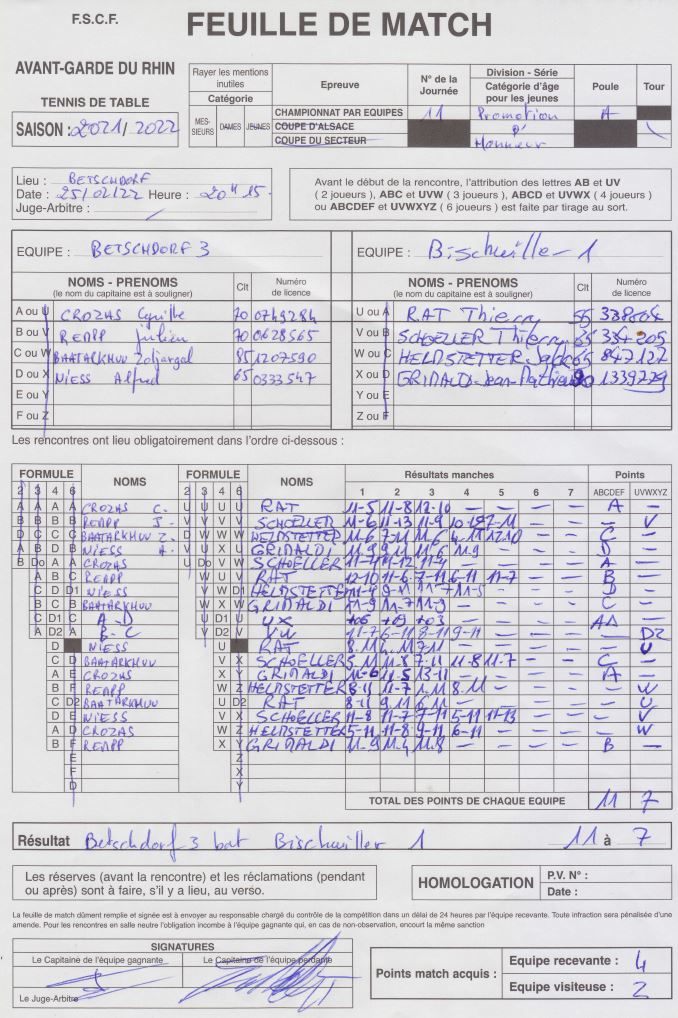 F.S.C.F.
FEUILLE DE MATCH
AVANT-GARDE DU RHIN
TENNIS DE TABLE
SAISON : 2021/2022
Rayer les mentions inutiles
Catégorie
MES-SIEURS DAMES JEUNES
Epreuve
CHAMPIONNAT PAR EQUIPES
COUPE D'ALSACE
COUPE DU SECTEUR
N° de la Journée
11
Division - Série
Catégorie d'âge pour les jeunes
Promotion
D'
Honneur
Poule
A
Tour
Lieu : BETSCHDORF
Date : 25/02/22 Heure : 20H15
Juge-Arbitre :
Avant le début de la rencontre, l'attribution des lettres AB et UV
( 2 joueurs ), ABC et UVW ( 3 joueurs ), ABCD et UVWX ( 4 joueurs )
ou ABCDEF et UVWXYZ ( 6 joueurs ) est faite par tirage au sort.
EQUIPE : BETSCHDORF 3
NOMS - PRENOMS
(le nom du capitaine est à souligner)
Clt
Numéro de licence
A ou U CROZAS Cyrille 70 0749284
B ou V REMPP Julien 70 0628565
C ou W BAATARKHUU Zoljargal 85 1207590
D ou X NIESS Alfred 65 0333547
E ou Y
F ou Z
EQUIPE : Bischwiller 1
NOMS - PRENOMS
(le nom du capitaine est à souligner)
Clt
Numéro de licence
U ou A RAT Thierry 55
V ou B SCHOELLER Thierry 65 334205
W ou C HELMSTETTER 65 847127
X ou D GRIMALDI Jean-Mathieu
Y ou E
Z ou F
Les rencontres ont lieu obligatoirement dans l'ordre ci-dessous :
FORMULE NOMS FORMULE NOMS Résultats manches Points
2 3 4 6 2 3 4 6 1 2 3 4 5 6 7 ABCDEF UVWXYZ
CROZAS C. RAT 11-5 11-8 12-10 A
REMPP J. SCHOELLER 11-6 11-13 11-9 V
BAATARKHUU Z. HELMSTETTER C
NIESS A. GRIMALDI D
CROZAS SCHOELLER 11-4 A
REMPP RAT 12-10 11-6 7-11 6-11 11-7 B
NIESS HELMSTETTER D
BAATARKHUU GRIMALDI 11-9 11-7 11-9 C
A-D UX +06 +09 +03
B-C VW 11-7 6-11 8-11 9-11 D2
NIESS RAT U
BAATARKHUU SCHOELLER 5-11 11-8 7-11 11-8 11-7 C
CROZAS GRIMALDI 11-6 11-5 13-11 A
REMPP HELMSTETTER 8-11 11-7 8-11 W
BAATARKHUU RAT 8-11 9-11 6-11 U
NIESS SCHOELLER 11-8 11-7 7-11 5-11 11-13 V
CROZAS HELMSTETTER 5-11 11-8 9-11 6-11 W
REMPP GRIMALDI 11-9 11-4 11-8 B
TOTAL DES POINTS DE CHAQUE EQUIPE 11 7
Résultat Betschdorf 3 bat Bischwiller 1 11 à 7
Les réserves (avant la rencontre) et les réclamations (pendant
ou après) sont à faire, s'il y a lieu, au verso.
HOMOLOGATION
P.V. N° :
Date :
La feuille de match dûment remplie et signée est à envoyer au responsable chargé du contrôle de la compétition dans un délai de 24 heures par l'équipe recevante. Toute infraction sera pénalisée d'une
amende. Pour les rencontres en salle neutre l'obligation incombe à l'équipe gagnante qui, en cas de non-observation, encourt la même sanction
SIGNATURES
Le Capitaine de l'équipe gagnante
Le Capitaine de l'équipe perdante
Le Juge-Arbitre
Points match acquis :
Equipe recevante : 4
Equipe visiteuse : 2